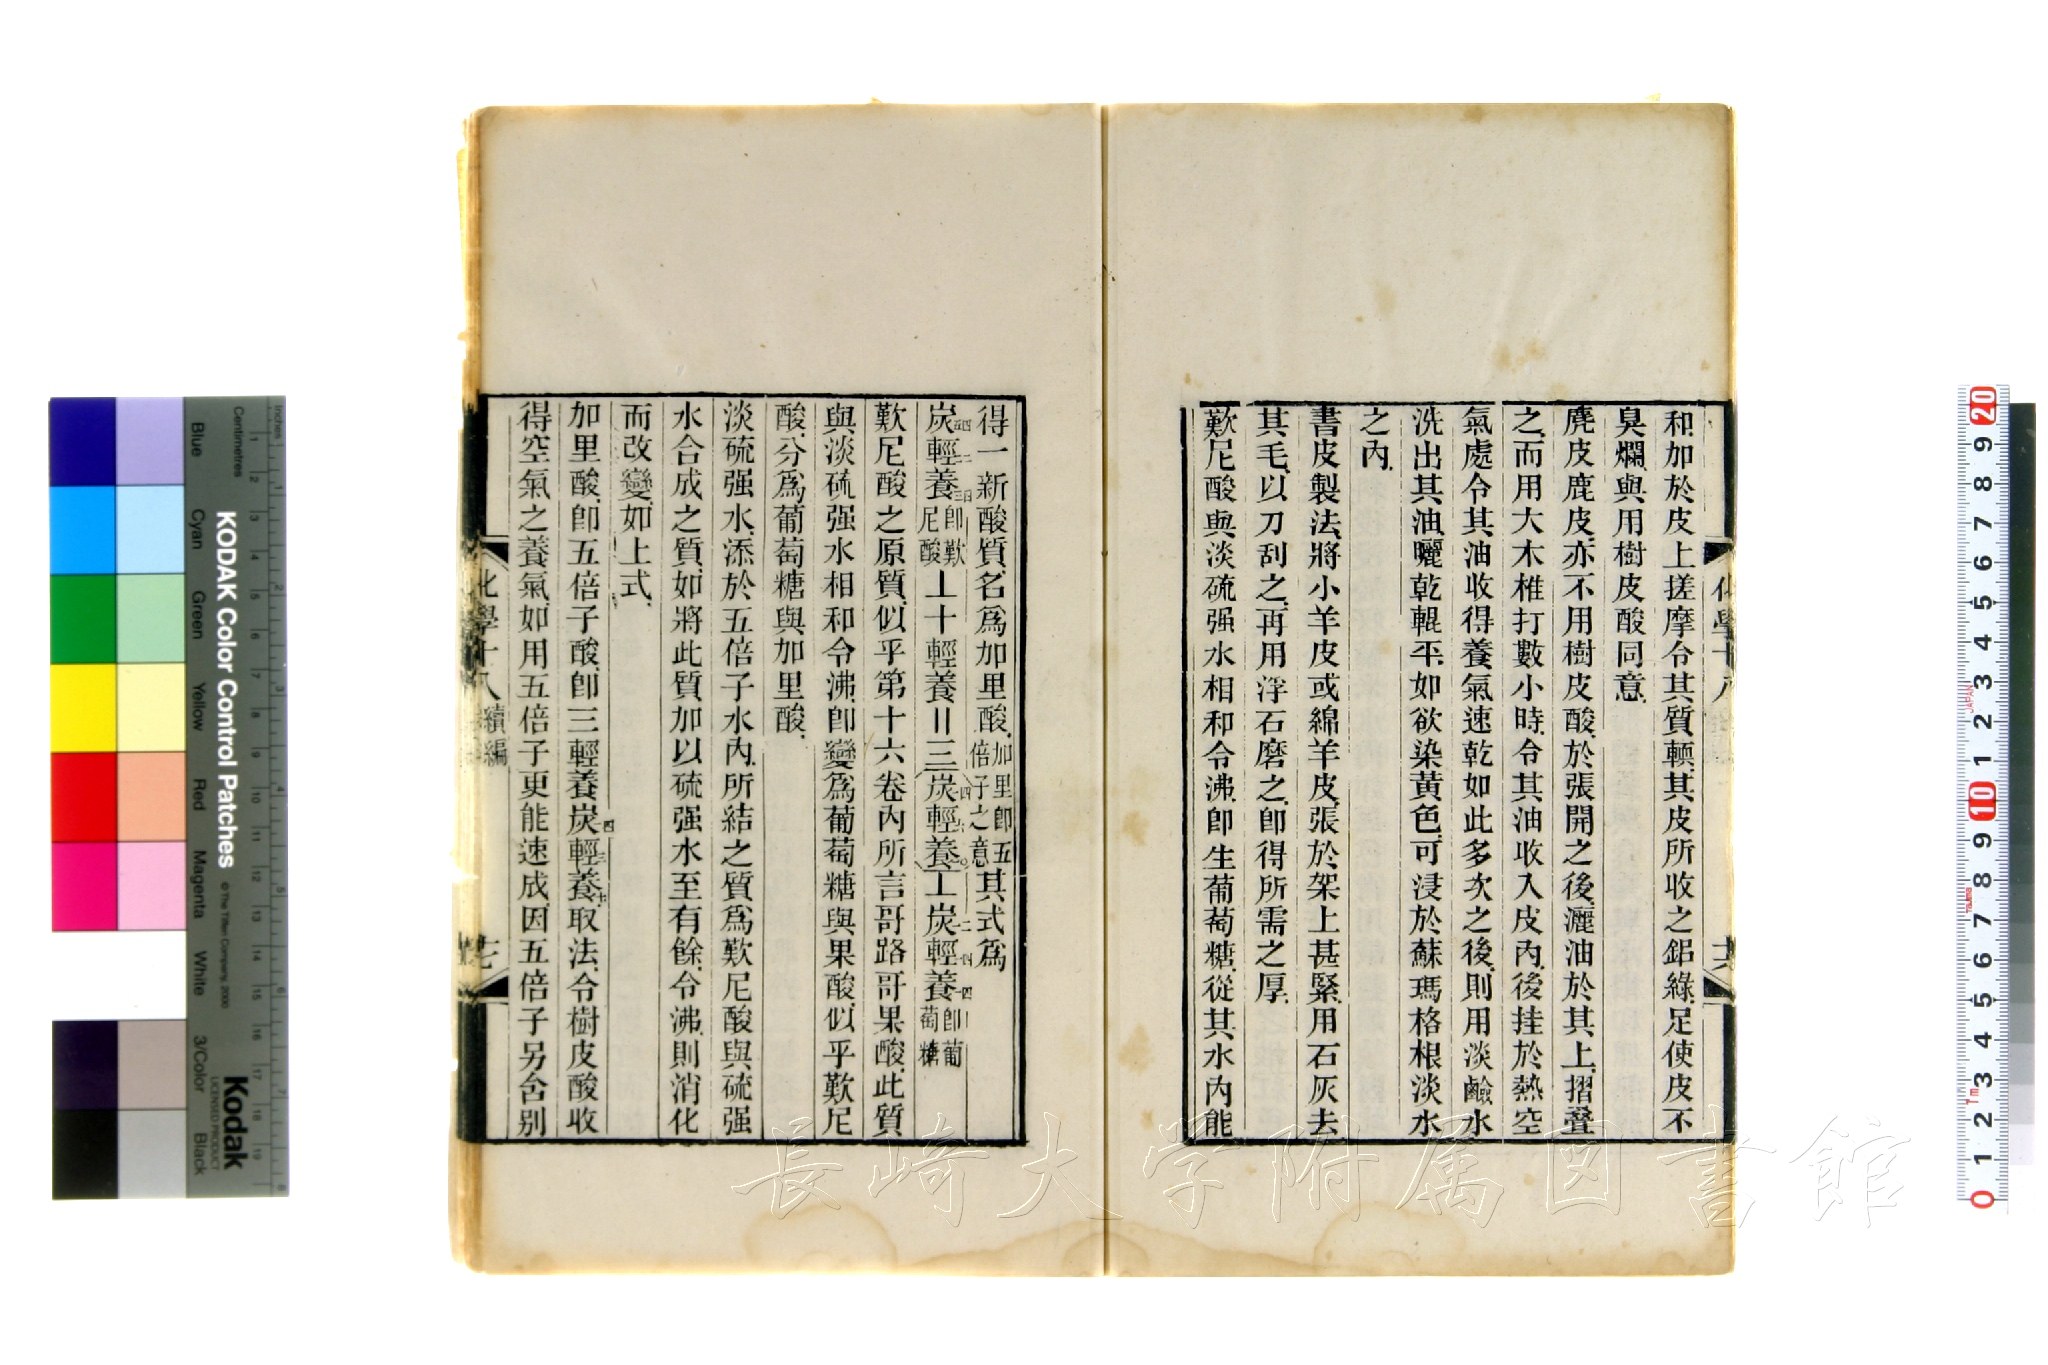 和、加於皮上搓摩令其質輭、其皮所收之鋁綠、足使皮不
臭爛、與用樹皮酸同意、
麂皮鹿皮、亦不用樹皮酸、於張開之後、灑油於其上、摺疊
之、而用大木椎打數小時、令其油收入皮內、後挂於熱空
氣處、令其油收得養氣速乾、如此多次之後、則用淡鹼水
洗出其油、曬乾輥平、如欲染黃色、可浸於蘇瑪格根淡水
之內、
書皮製法、將小羊皮或綿羊皮、張於架上甚緊、用石灰去
其毛、以刀刮之、再用浮石磨之、卽得所需之厚、
歎尼酸與淡硫强水相和令沸、卽生葡萄糖、從其水內能
化學十八
六
得一新酸質、名爲加里酸、加里卽五倍子之意其式爲
炭輕養卽歎尼酸⊥十輕養〢三炭輕養⊥炭輕養卽葡萄糖
歎尼酸之原質、似乎第十六卷內所言哥路哥果酸、此質
與淡硫强水相和令沸、卽變爲葡萄糖與果酸、似乎歎尼
酸、分爲葡萄糖與加里酸、
淡硫强水、添於五倍子水內、所結之質、爲歎尼酸與硫强
水合成之質、如將此質、加以硫强水至有餘、令沸、則消化
而改變、如上式、
加里酸、卽五倍子酸、卽三輕養炭四輕三養十取法、令樹皮酸收
得空氣之養氣、如用五倍子更能速成、因五倍子另含别
化學十八 續編
七
長崎大学附属図書館
KODAK Color Control Patches
© The Tiffen Company, 2000
Kodak
LICENSED PRODUCT
Inches
Centimetres
Blue
Cyan
Green
Yellow
Red
Magenta
White
3/Color
Black
0 1 2 3 4 5 6 7 8 9 10 1 2 3 4 5 6 7 8 9 20
JAPAN